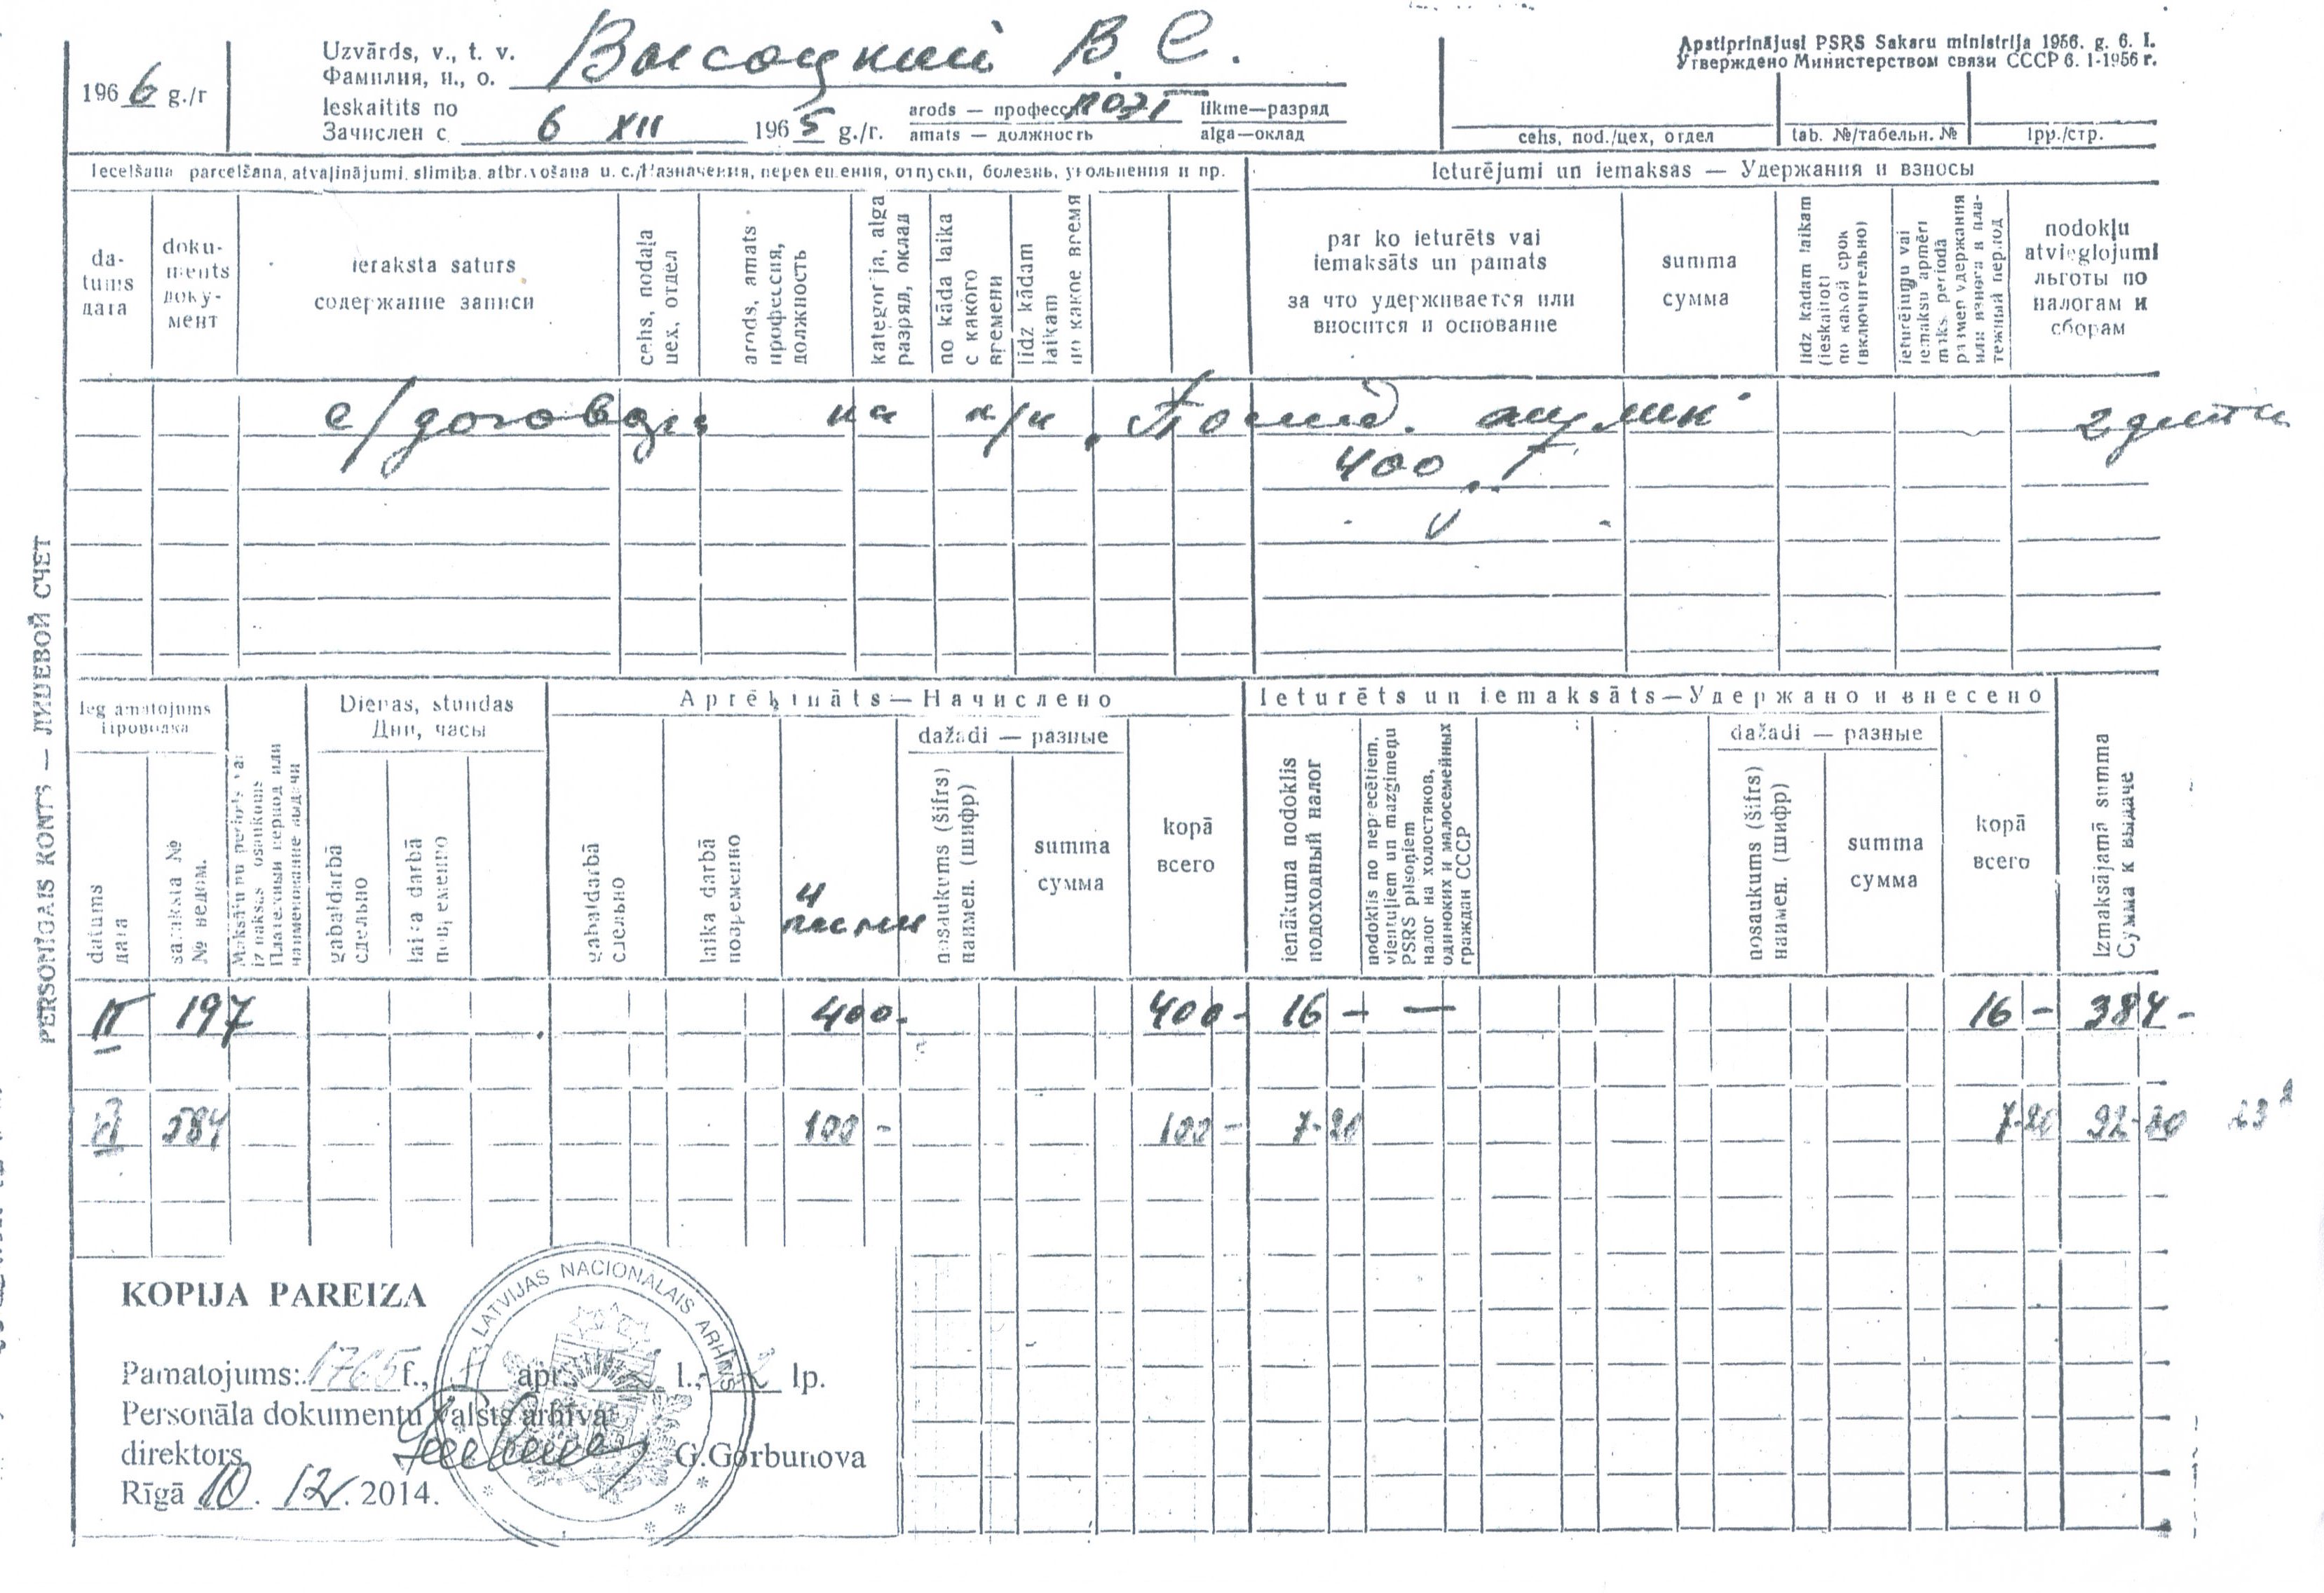 Apstiprinājusi PSRS Sakaru ministrija 1956. g. 6. I.
Утверждено Министерством связи СССР 6. 1-1956 г.
1966 g./г
Uzvārds, v., t. v.
Фамилия, и., о.
Высоцкий В. С.
Ieskaitīts no
Зачислен с
6 XII 1965 g./г.
arods — профессия поэт
amats — должность
likme—разряд
alga—оклад
cehs, nod./цех, отдел
tab. №/табельн. №
lpp./стр.
Iecelšana parcelšana, atvaļinājumi, slimība, atbrīvošana u. c./Назначения, перемещения, отпуски, болезнь, увольнения и пр.
Ieturējumi un iemaksas — Удержания и взносы
da-
tums
дата
doku-
ments
доку-
мент
ieraksta saturs
содержание записи
cehs, nodaļa
цех, отдел
arods, amats
профессия,
должность
kategorija, alga
разряд, оклад
no kāda laika
с какого
времени
līdz kādam
laikam
по какое время
par ko ieturēts vai
iemaksāts un pamats
за что удерживается или
вносится и основание
summa
сумма
līdz kādam laikam
(ieskaitot)
по какой срок
(включительно)
ieturējumu vai
iemaksu apmēri
maks. periodā
размер удержания
или взноса в пла-
тежный период
nodokļu
atvieglojumi
льготы по
налогам и
сборам
с/договору на к/к
400
2 дети
PERSONĪGAIS KONTS — ЛИЦЕВОЙ СЧЕТ
Iegrāmatojums
Проводка
Dienas, stundas
Дни, часы
Aprēķināts — Начислено
Ieturēts un iemaksāts — Удержано и внесено
datums
дата
saraksta №
№ ведом.
Maksājumu periods vai
izmaksas nosaukums
Платежный период или
наименование выдачи
gabaldarbā
сдельно
laika darbā
повременно
gabaldarbā
сдельно
laika darbā
повременно
4
песни
dažādi — разные
nosaukums (šifrs)
наимен. (шифр)
summa
сумма
kopā
всего
ienākuma nodoklis
подоходный налог
nodoklis no neprecētiem,
vientuļiem un mazģimeņu
PSRS pilsoņiem
налог на холостяков,
одиноких и малосемейных
граждан СССР
dažādi — разные
nosaukums (šifrs)
наимен. (шифр)
summa
сумма
kopā
всего
Izmaksājamā summa
Сумма к выдаче
II 197 400- 400- 16 - — 16 - 384-
584 100 - 100 - 7-20 7-20 92-80
KOPIJA PAREIZA
Pamatojums: 1765 f., apr., l., lp.
Personāla dokumentu valsts arhīva
direktors G.Gorbunova
Rīgā 10. 12. 2014.
LATVIJAS NACIONĀLAIS ARHĪVS